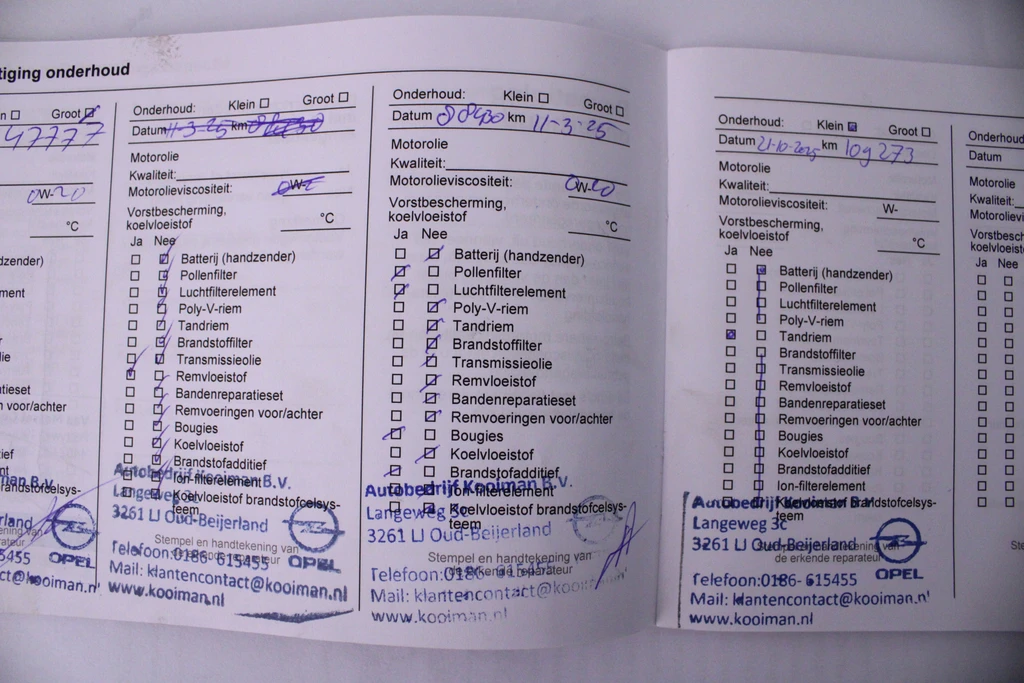 tiging onderhoud
n Groot
47777
0W-20
°C
dzender)
ment
lie
tieset
n voor/achter
tief
nt
randstofcelsys-
man B.V.
rland
OPEL
5455
ct@kooiman.nl
Onderhoud: Klein Groot
Datum 11-3-25 km
Motorolie
Kwaliteit:
Motorolieviscositeit: 0W-2
Vorstbescherming,
koelvloeistof °C
Ja Nee
Batterij (handzender)
Pollenfilter
Luchtfilterelement
Poly-V-riem
Tandriem
Brandstoffilter
Transmissieolie
Remvloeistof
Bandenreparatieset
Remvoeringen voor/achter
Bougies
Koelvloeistof
Brandstofadditief
Ion-filterelement
Koelvloeistof brandstofcelsys-
teem
Autobedrijf Kooiman B.V.
Langeweg 3c
3261 LJ Oud-Beijerland
Stempel en handtekening van
Telefoon:0186- 615455
OPEL
Mail: klantencontact@kooiman.nl
www.kooiman.nl
Onderhoud: Klein Groot
Datum 88430 km 11-3-25
Motorolie
Kwaliteit:
Motorolieviscositeit: 0W-20
Vorstbescherming,
koelvloeistof °C
Ja Nee
Batterij (handzender)
Pollenfilter
Luchtfilterelement
Poly-V-riem
Tandriem
Brandstoffilter
Transmissieolie
Remvloeistof
Bandenreparatieset
Remvoeringen voor/achter
Bougies
Koelvloeistof
Brandstofadditief
Ion-filterelement
Koelvloeistof brandstofcelsys-
teem
Autobedrijf Kooiman B.V.
Langeweg 3c
3261 LJ Oud-Beijerland
Stempel en handtekening van
de erkende reparateur
Telefoon:0186- 615455
Mail: klantencontact@kooiman
www.kooiman.nl
Onderhoud: Klein Groot
Datum 21-10-2025 km 109273
Motorolie
Kwaliteit:
Motorolieviscositeit: W-
Vorstbescherming,
koelvloeistof °C
Ja Nee
Batterij (handzender)
Pollenfilter
Luchtfilterelement
Poly-V-riem
Tandriem
Brandstoffilter
Transmissieolie
Remvloeistof
Bandenreparatieset
Remvoeringen voor/achter
Bougies
Koelvloeistof
Brandstofadditief
Ion-filterelement
Koelvloeistof brandstofcelsys-
teem
Autobedrijf Kooiman B.V.
Langeweg 3c
3261 LJ Oud-Beijerland
Stempel en handtekening van
de erkende reparateur
OPEL
Telefoon:0186- 615455
Mail: klantencontact@kooiman.nl
www.kooiman.nl
Onderhoud
Datum
Motorolie
Kwaliteit:
Motorolievi
Vorstbesch
koelvloeist
Ja Nee
Ste